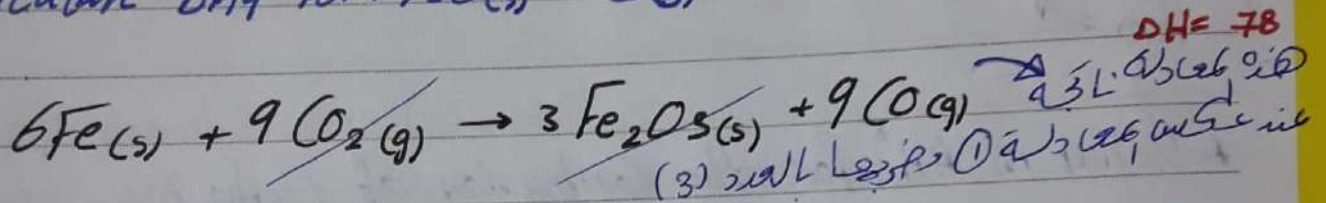 ΔH= 78
6Fe(s) + 9CO2(g) → 3Fe2O3(s) + 9CO(g) هذه المعادلة ناتجة
عند عكس المعادلة ① وضربها بالعدد (3)